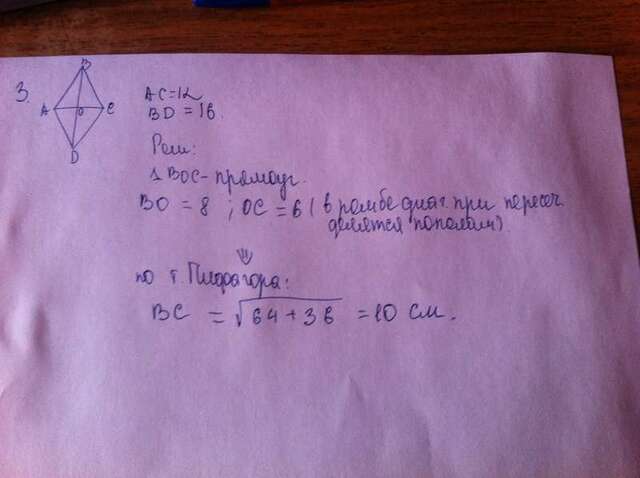 3.
B
A O C
D
AC=12
BD=16.
Реш:
1 BOC- прямоуг.
BO = 8 ; OC = 6 ( в ромбе диаг. при пересеч.
делятся пополам)
⇓
по т. Пифагора:
BC = √64+36 = 10 см.